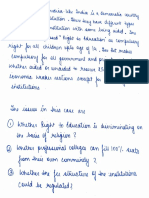 India like India is a democratic country
institution. Since they have different types
institution with some being aided. The
Right to Education as compulsory
Right for all children upto age of 14. This Act makes
compulsory for all government and private
whether aided or unaided to reserve 25%
economic weaker sections except for
institutions.
The issues in this case are
① Whether Right to Education is discriminating on
the basis of religion?
② Whether professional colleges can fill 100% seats
from their own community?
③ Whether the fee structure of the institutions
could be regulated?